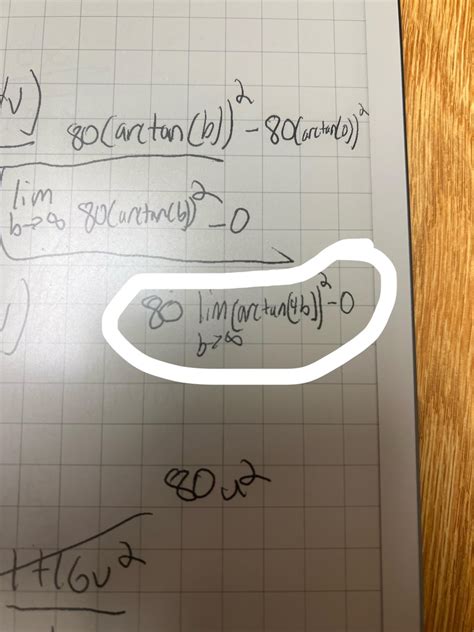 80(arctan(b))² - 80(arctan(0))²
lim b→∞ 80(arctan(b))² - 0
80 lim b→∞ (arctan(4b))² - 0
80u²
+16u²